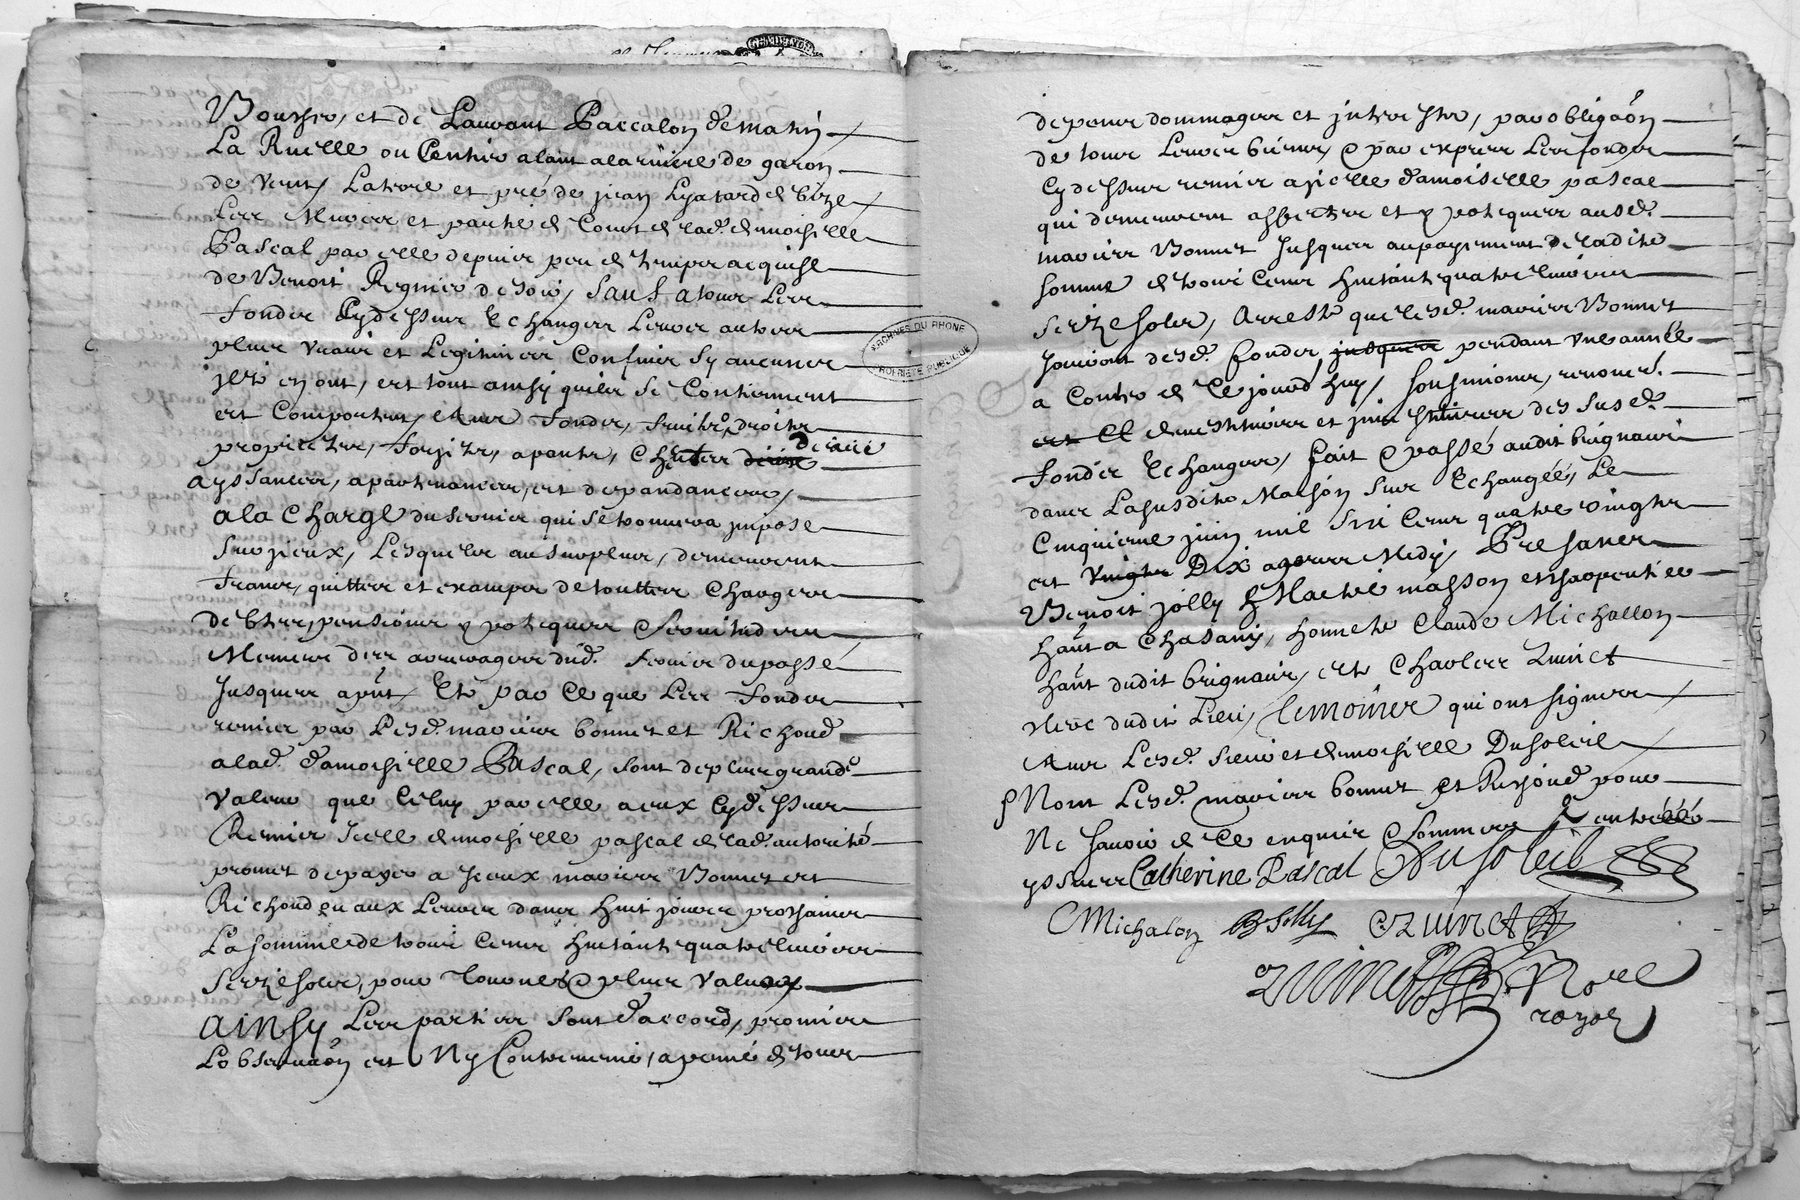 et de Lauvant Baccalon de matin
La Ruelle ou Centier alant a la riuiere de garon
de vent, La terre et pré de jean Lyatard de bize
Les Meures et partie de Cour de lad. demoiselle
Pascal par elle depuis peu de temps acquise
de Benoit Regnier de soir, sauf a tous Les
fonder Cydessus Echanger Leurs autres
plus vraies et Legitimes Confins sy aucunes
jl en ont, et tout ainsy quils se Contiennent
et Comportent, Auec fonder, fruits, droits
proprietez, Forjets, apants, Chutes d'eau
ayssances, apartenances, et despandances,
a la Charge du seruis qui se trouuera jnposé
sur jceux, Lesquels au surplus, demeurent
francs, quittes et exampts de touttes Charges
debtes, pensions ypotequees & seruitudes
Mesmes des arrerages dud. seruis du passé
Jusques apnt, Et par Ce que Les fonder
remis par Lesd. mariers bonnet et Richoud
a lad. damoiselle Pascal, sont de plus grande
Valeur que Celuy par elle a eux Cydessus
Remis Icelle demoiselle pascal de lad. autorité
promet de payer a Jceux mariers Bonnet et
Richoud eu aux Leurs dans huit jours prochains
La somme de trois Cens huictante quatre liures
seize sols, pour tournes & plus Value
Ainsy Les parties sont d'accord, promis
Lobseruaon et Ny Contreuenir, a peine de tous
depens dommages et jnterests, par obligaon
de tous Leurs biens, & par expres Les fonder
Cydessus remis a jcelle damoiselle pascal
qui demeurent affectes et ypotequees ausd.
mariers Bonnet Jusques au payement de ladite
somme de trois Cens huictante quatre liures
seize sols, Arresté que lesd. mariers Bonnet
Jouiront desd. fonder jusques pendant vne année
a Conter de Ce jourd'huy, soubmions, renoncé.
et Cl de uestitures et jnuestitures des susd.
fonder Echanger, fait & passé audit brignais
dans La susdite Maison sus Echangée, Le
Cinquieme juin mil six Cens quatre vingts
et vingts Dix apres Midy, Presances
Benoit jolly Maitre masson et charpentier
hant a Chasany, honnete Claude Michallon
hant dudit brignais, et Charles Zuinet
Clerc dudit Lieu, temoins qui ont signes
Auec Lesd. sieur et demoiselle Dusoleil
Nont Lesd. mariers bonnet et Richoud pour
Ne sauoir de Ce enquis & sommes
Catherine Pascal Dusoleil
CMichalon BJolly CZuinet
Zuinet Nore
royal
ARCHIVES DU RHONE
PROPRIETE PUBLIQUE